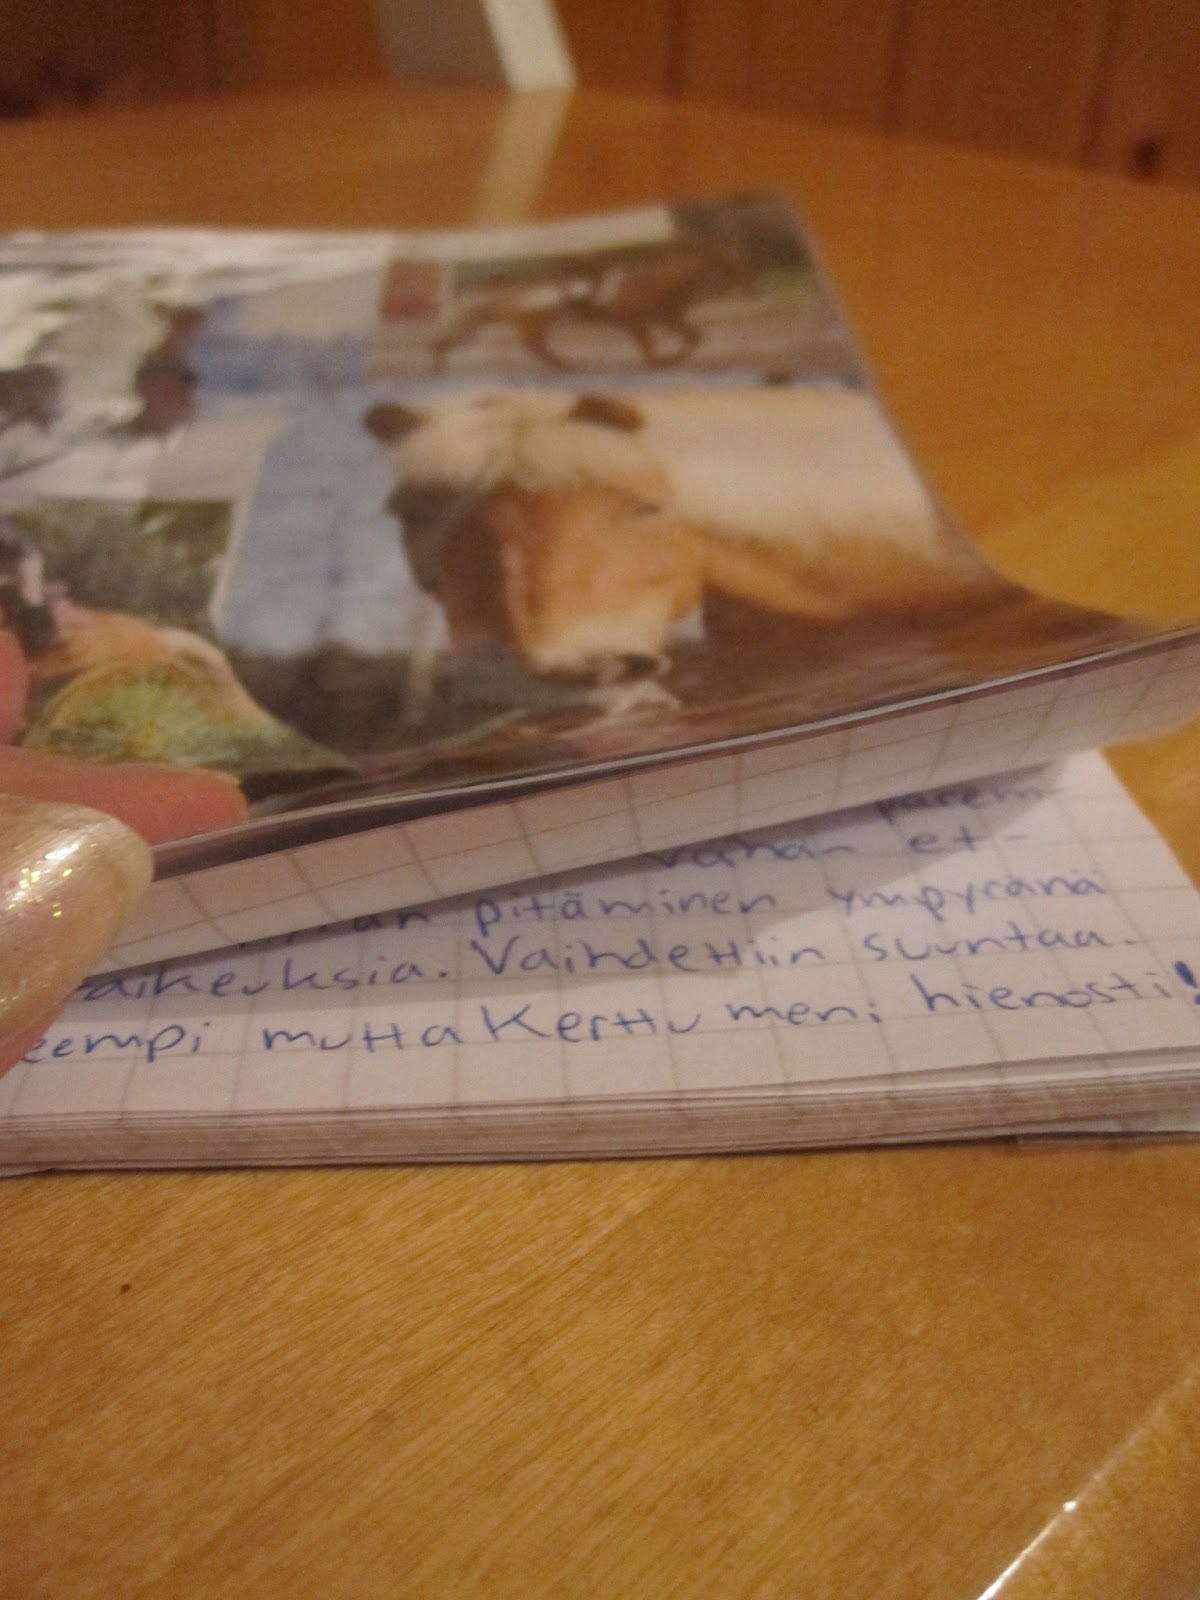 parem-
vähän et-
pitäminen ympyränä
aikeuksia. Vaihdettiin suuntaa.
eempi mutta Kerttu meni hienosti!